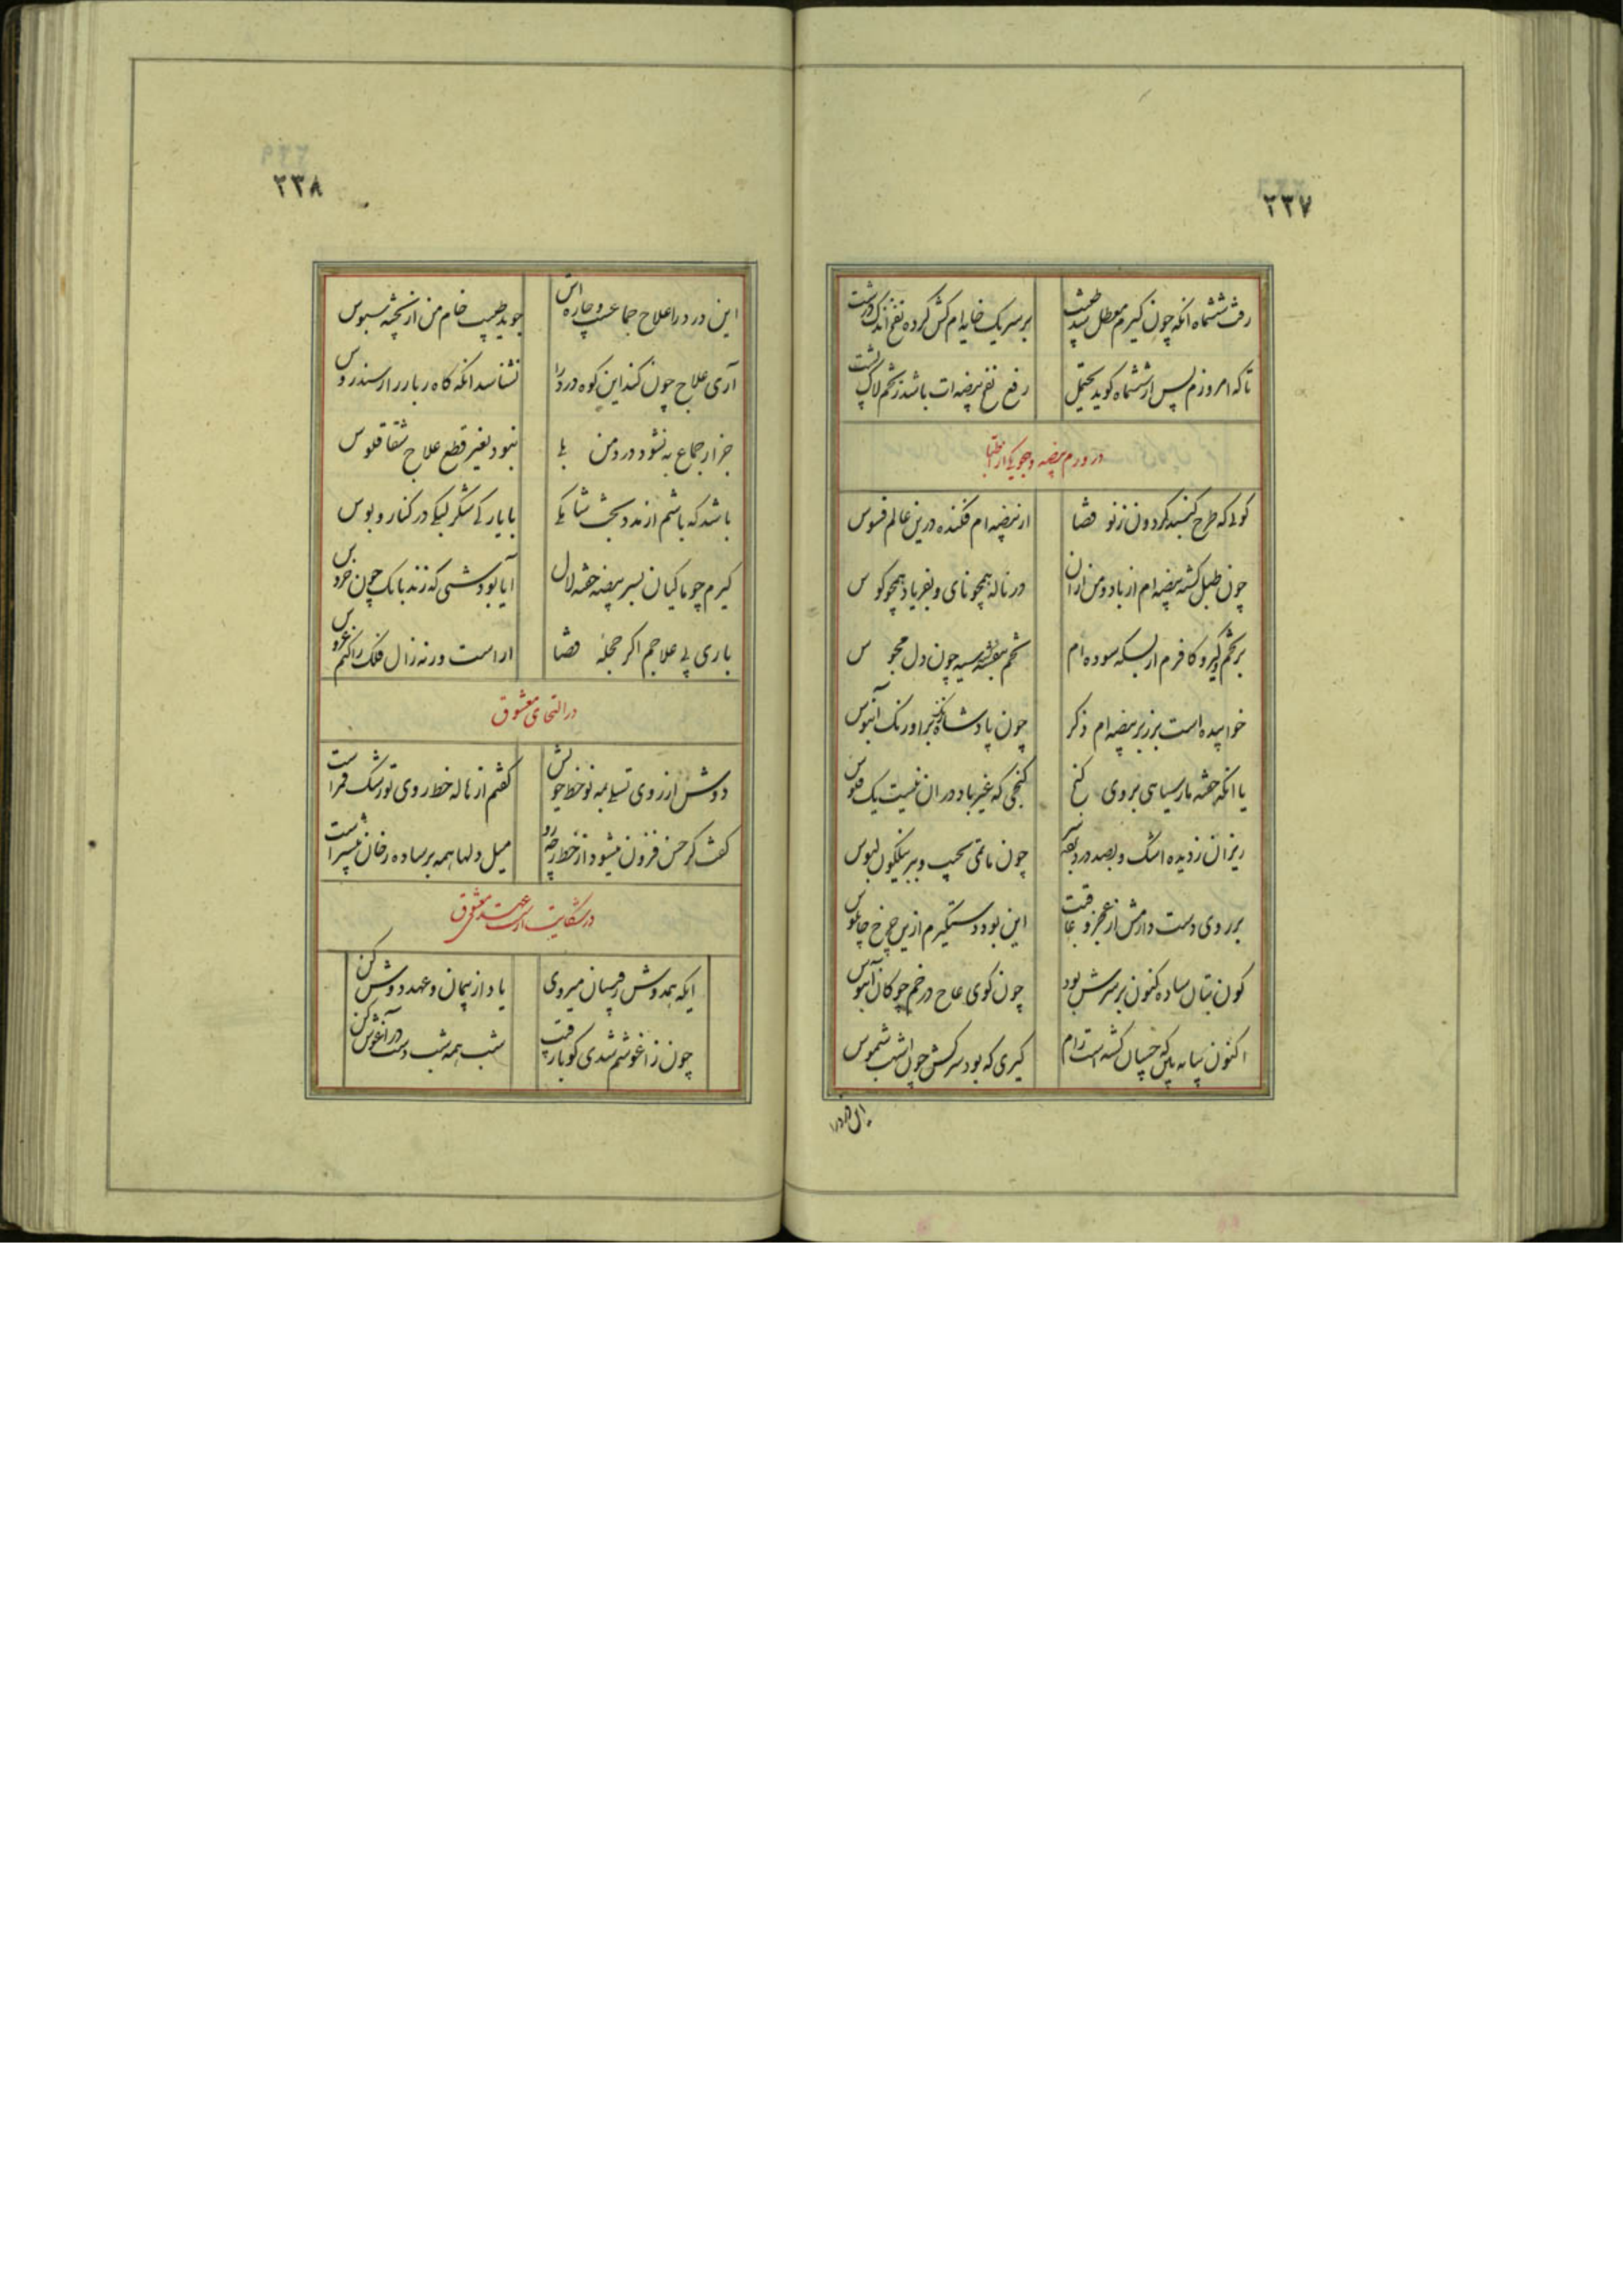 ۲۳۷
رفت ششماه انکه چون کیرم معطل شد طبیب
بر سر یک خایه‌ام کش کرده نفخ اندک درشت
تا که امروزم پس از ششماه کوید محتمل
رفع نفخ بیضه‌ات باشد ز تخم لاک پشت
در ورم بیضه و هجو یکی از اطبا
کوئی که طرح کنبد کردون ز نو قضا
از بیضه‌ام فکنده درین عالم فسوس
چون طبل کشته بیضه‌ام از باد و من از ان
در ناله همچو نای و بفریاد همچو کوس
بر تخم کیر و کافرم از بسکه سوده‌ام
تخم بنفشه سیه چون دل مجوس
خوابیده است بر زبر بیضه‌ام ذکر
چون پادشاه زنک بر اورنک آبنوس
یا انکه خفته مار سیاهی بروی کنج
کنجی که غیر باد در ان نیست یک فلوس
ریزان ز دیده اشک و بصد درد
چون ماتمی بجیب و ببر نیلکون لبوس
بر روی دست دارمش از عجز و عاقبت
این بود دستکیرم ازین چرخ چاپلوس
کون بتان ساده کنون بر سرش بود
چون کوی عاج در خم چوکان آبنوس
اکنون ببین که چسان کشته است رام
کیری که بود سرکش چون اشهب شموس
این درد را
۲۳۸
این درد را علاج جماعست و چاره‌اش
جوید طبیب خام من از پخته سبوس
آری علاج چون کند این کوه درد را
نشناسد انکه کاه ربا را از سندروس
جز از جماع به نشود درد من بلی
نبود بغیر قطع علاج شقاقلوس
باشد که باشم از مدد بخت شا یکی
با یارکی شکر لبکی در کنار و بوس
کیرم چو ماکیان بسر بیضه خفته لال
ایا بود شبی که زند بانک چون خروس
باری پی علاجم اکر حجله قضا
اراست ورنه زال فلک را کنم عروس
در التحای معشوق
دوش از روی تسلی به نو خط جوانش
کفتم از هاله خط روی تو رشک قمر است
کفت کر حسن فزون میشود از خط ز چه رو
میل دلها همه بر ساده رخان بیشتر است
در شکایت از عهد معشوق
ایکه همدوش رقیبان میروی
یاد از پیمان و عهد دوش کن
چون ز اغوشم شدی کو با رقیب
شب همه شب دست در آغوش کن